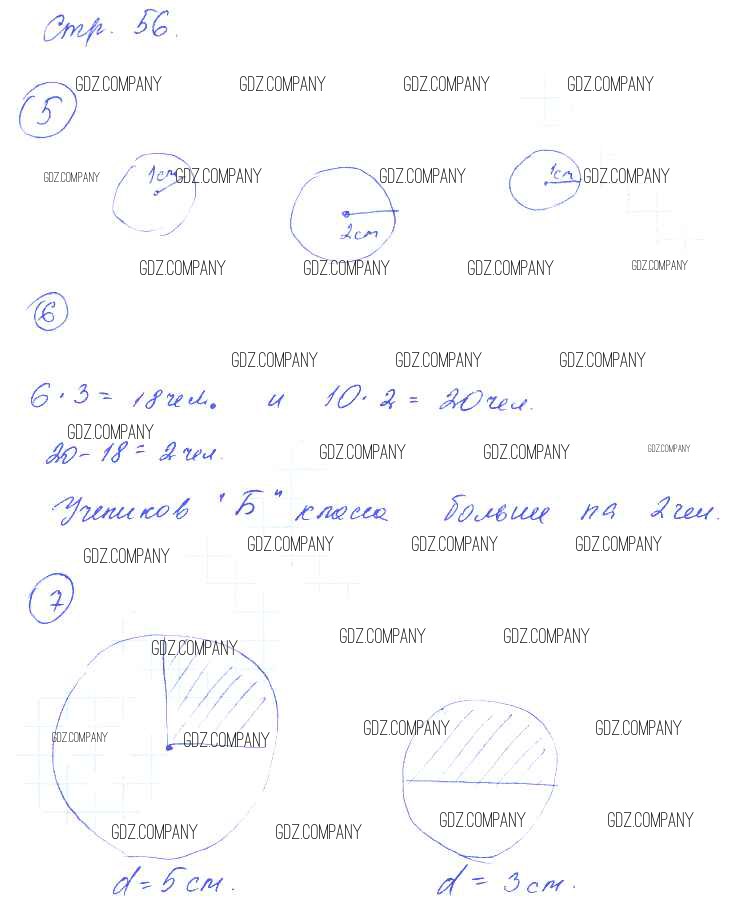 Стр. 56.
GDZ.COMPANY GDZ.COMPANY GDZ.COMPANY GDZ.COMPANY
5
GDZ.COMPANY 1см GDZ.COMPANY GDZ.COMPANY 1см GDZ.COMPANY
2см
GDZ.COMPANY GDZ.COMPANY GDZ.COMPANY GDZ.COMPANY
6
GDZ.COMPANY GDZ.COMPANY GDZ.COMPANY
6 · 3 = 18 чел. и 10 · 2 = 20 чел.
GDZ.COMPANY
20 - 18 = 2 чел. GDZ.COMPANY GDZ.COMPANY GDZ.COMPANY
Учеников "Б" класса больше на 2 чел.
GDZ.COMPANY GDZ.COMPANY GDZ.COMPANY GDZ.COMPANY
7
GDZ.COMPANY GDZ.COMPANY GDZ.COMPANY
GDZ.COMPANY GDZ.COMPANY GDZ.COMPANY GDZ.COMPANY
GDZ.COMPANY GDZ.COMPANY GDZ.COMPANY GDZ.COMPANY
d = 5 см. d = 3 см.